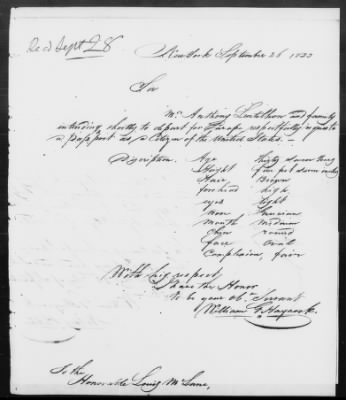 Recd Sept 28
New York September 26 1833
Sir
Mr. Anthony and family
intending shortly to depart for Europe respectfully requests
a Passport as a Citizen of the United States. —
Discription. Age thirty seven
Height five feet seven
Hair Brown
forehead high
eyes light
nose
mouth medium
chin round
face oval
Complexion, fair
With high respect
I have the Honor
to be your Obt. Servant
William G. Haycock
To the
Honorable Louis McLane,